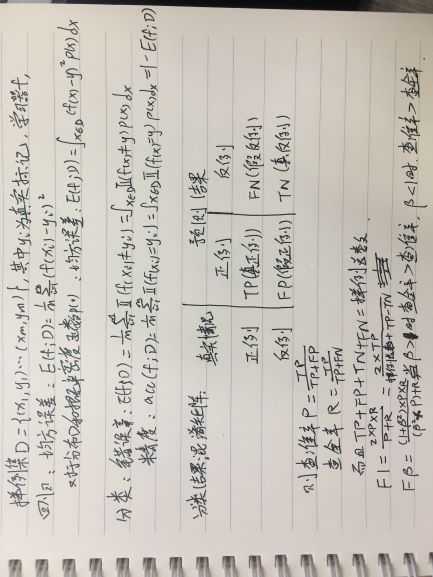 样例集 D = {(x1, y1) ··· (xm, ym)}, 其中 yi 为真实标记, 学习器 f,
回归: 均方误差: E(f; D) = 1/m Σ (f(xi) - yi)²
对数据分布D和概率密度函数p(·) : 均方误差: E(f; D) = ∫x∈D (f(x) - y)² p(x) dx
分类: 错误率: E(f; D) = 1/m Σ Ⅱ(f(xi) ≠ yi) = ∫x∈D Ⅱ(f(x) ≠ y) p(x) dx
精度: acc(f; D) = 1/m Σ Ⅱ(f(xi) = yi) = ∫x∈D Ⅱ(f(x) = y) p(x) dx = 1 - E(f; D)
分类结果混淆矩阵:
真实情况 预测结果
正例 反例
正例 TP(真正例) FN(假反例)
反例 FP(假正例) TN(真反例)
则查准率 P = TP / TP+FP
查全率 R = TP / TP+FN
而且 TP + FP + TN + FN = 样例总数
F1 = 2×P×R / P+R = 2×TP / 样例总数+TP-TN
Fβ = (1+β²)×P×R / (β²×P)+R 当 β > 1时 查全率 > 查准率, β < 1时 查准率 > 查全率.